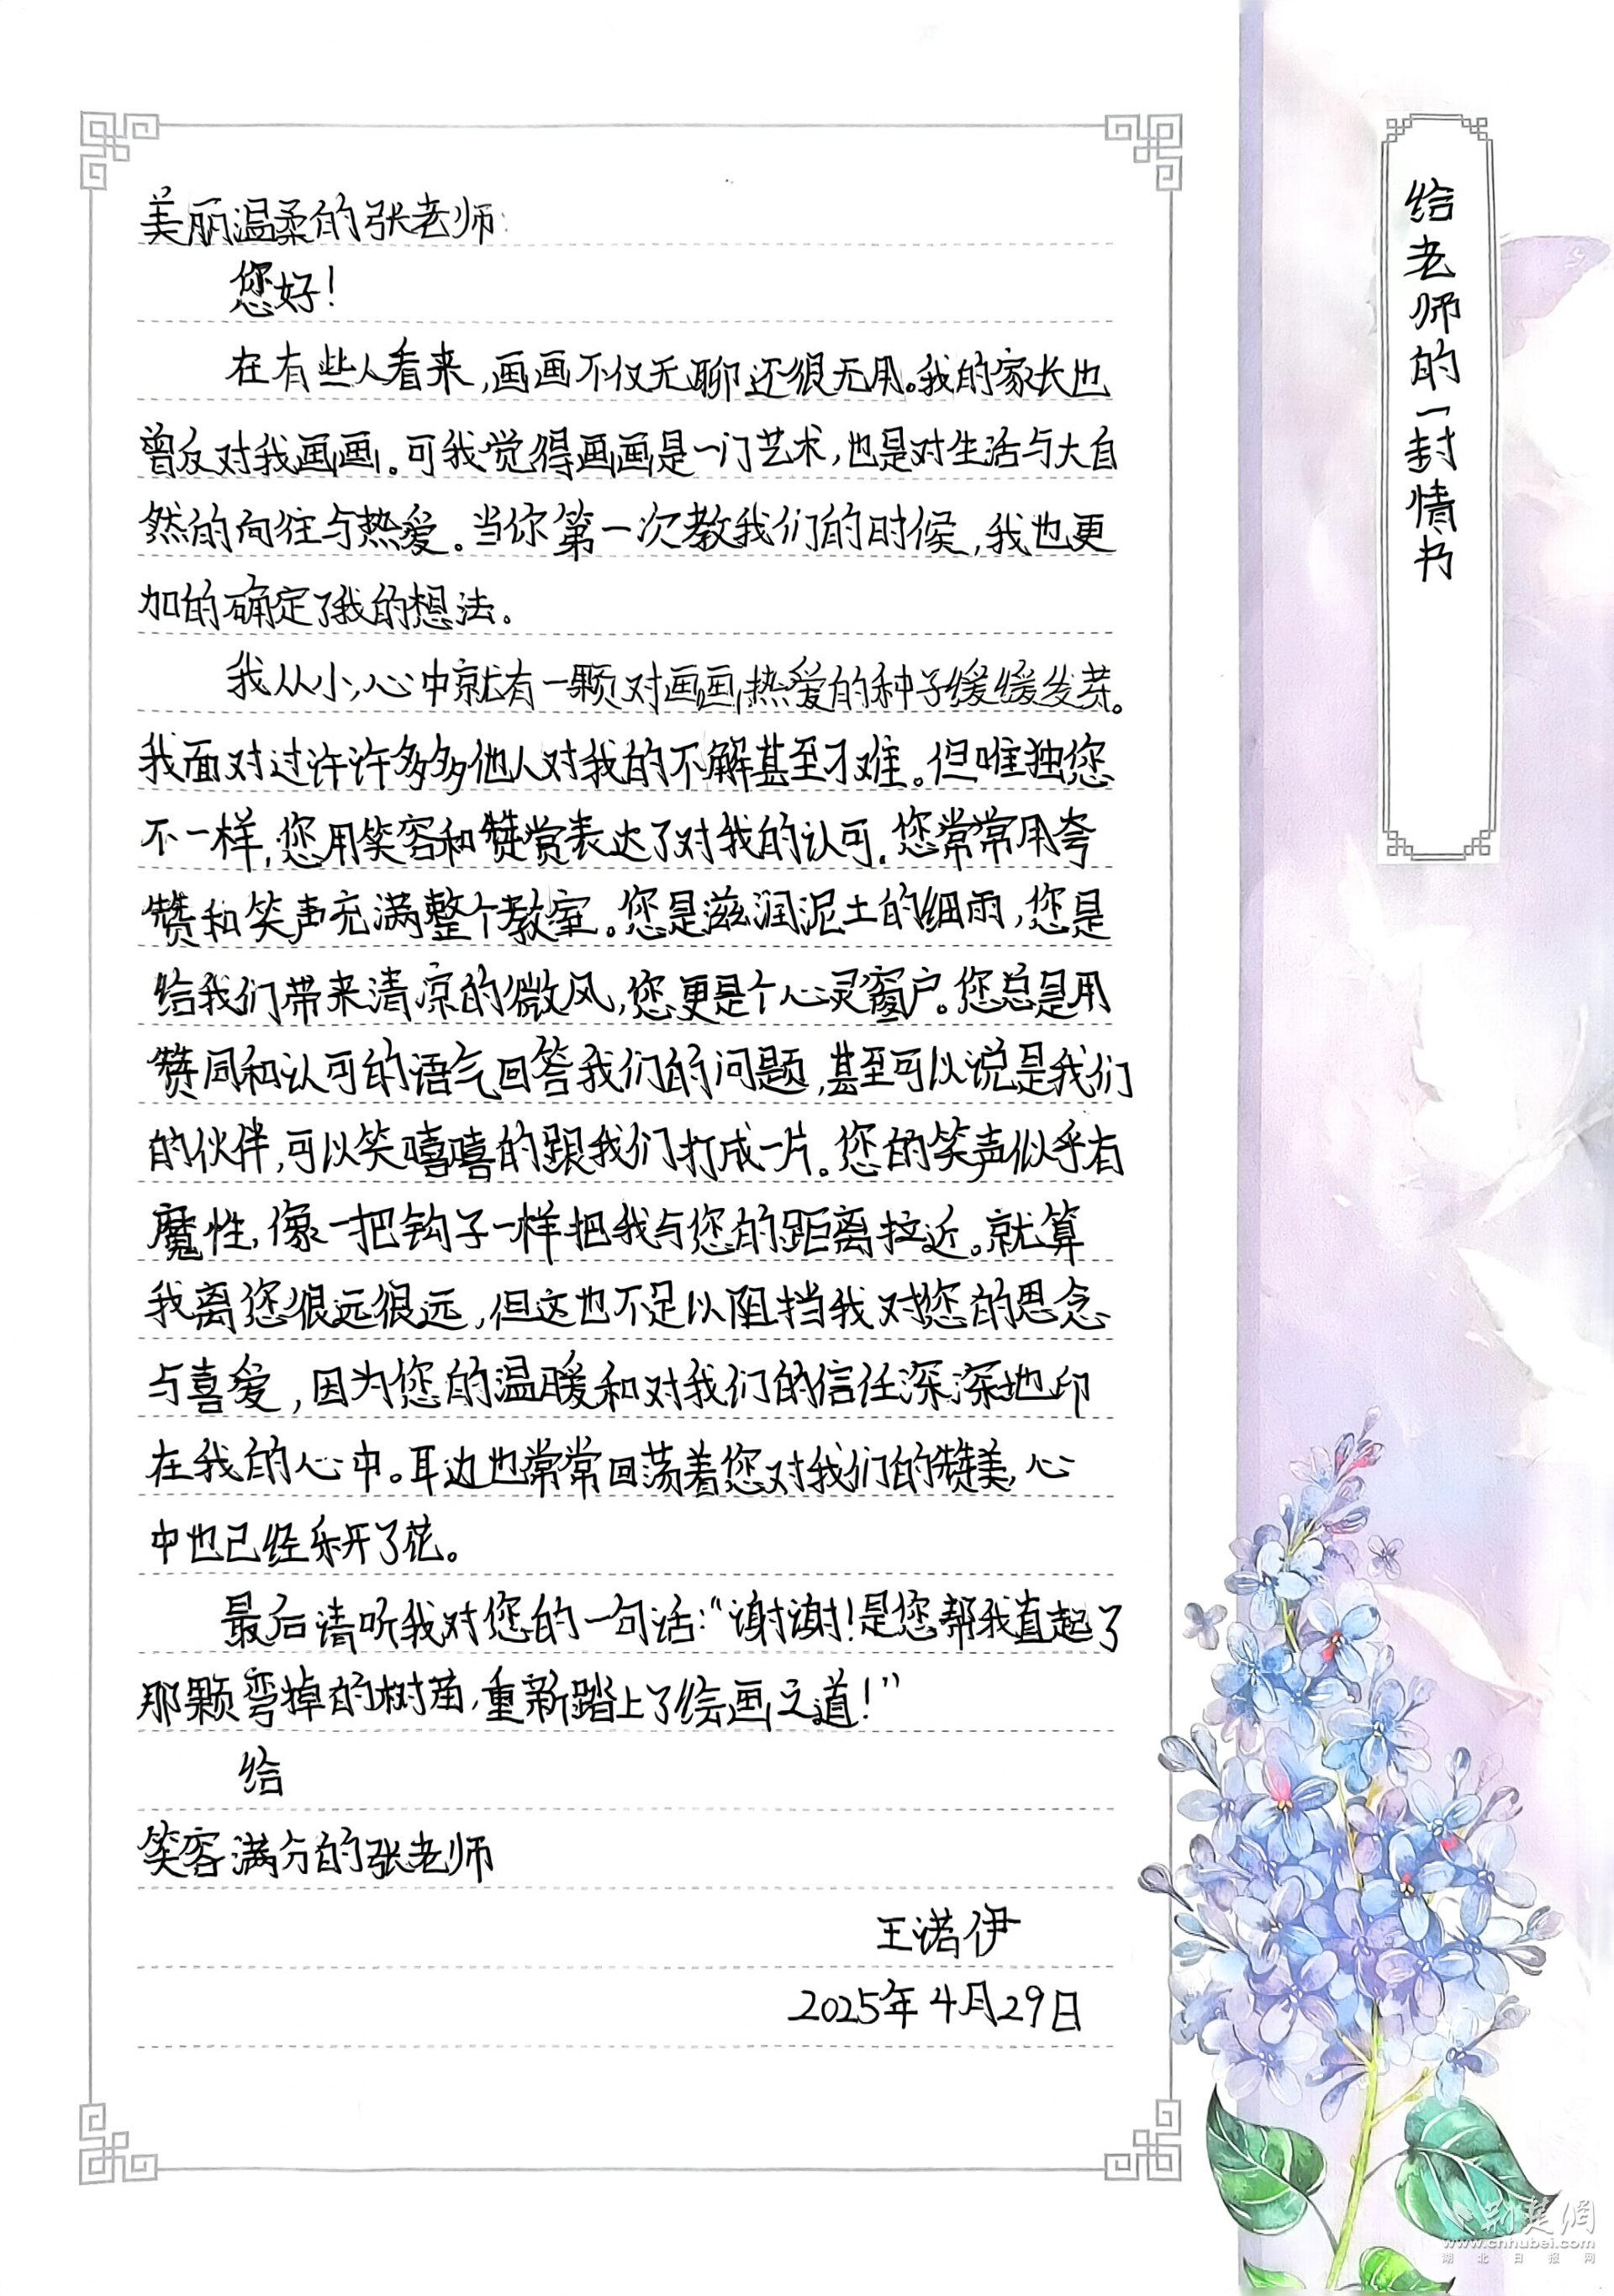 给老师的一封情书
美丽温柔的张老师:
您好!
在有些人看来,画画不仅无聊还很无用。我的家长也
曾反对我画画。可我觉得画画是一门艺术,也是对生活与大自
然的向往与热爱。当你第一次教我们的时候,我也更
加的确定了我的想法。
我从小,心中就有一颗对画画热爱的种子缓缓发芽。
我面对过许许多多他人对我的不解甚至刁难。但唯独您
不一样,您用笑容和赞赏表达了对我的认可。您常常用夸
赞和笑声充满整个教室。您是滋润泥土的细雨,您是
给我们带来清凉的微风,您更是个心灵窗户。您总是用
赞同和认可的语气回答我们的问题,甚至可以说是我们
的伙伴,可以笑嘻嘻的跟我们打成一片。您的笑声似乎有
魔性,像一把钩子一样把我与您的距离拉近。就算
我离您很远很远,但这也不足以阻挡我对您的思念
与喜爱,因为您的温暖和对我们的信任深深地印
在我的心中。耳边也常常回荡着您对我们的赞美,心
中也已经乐开了花。
最后请听我对您的一句话:“谢谢!是您帮我直起了
那颗弯掉的树苗,重新踏上了绘画之道!”
给
笑容满分的张老师
王诺伊
2025年4月29日
荆楚网
www.cnhubei.com
湖北日报网